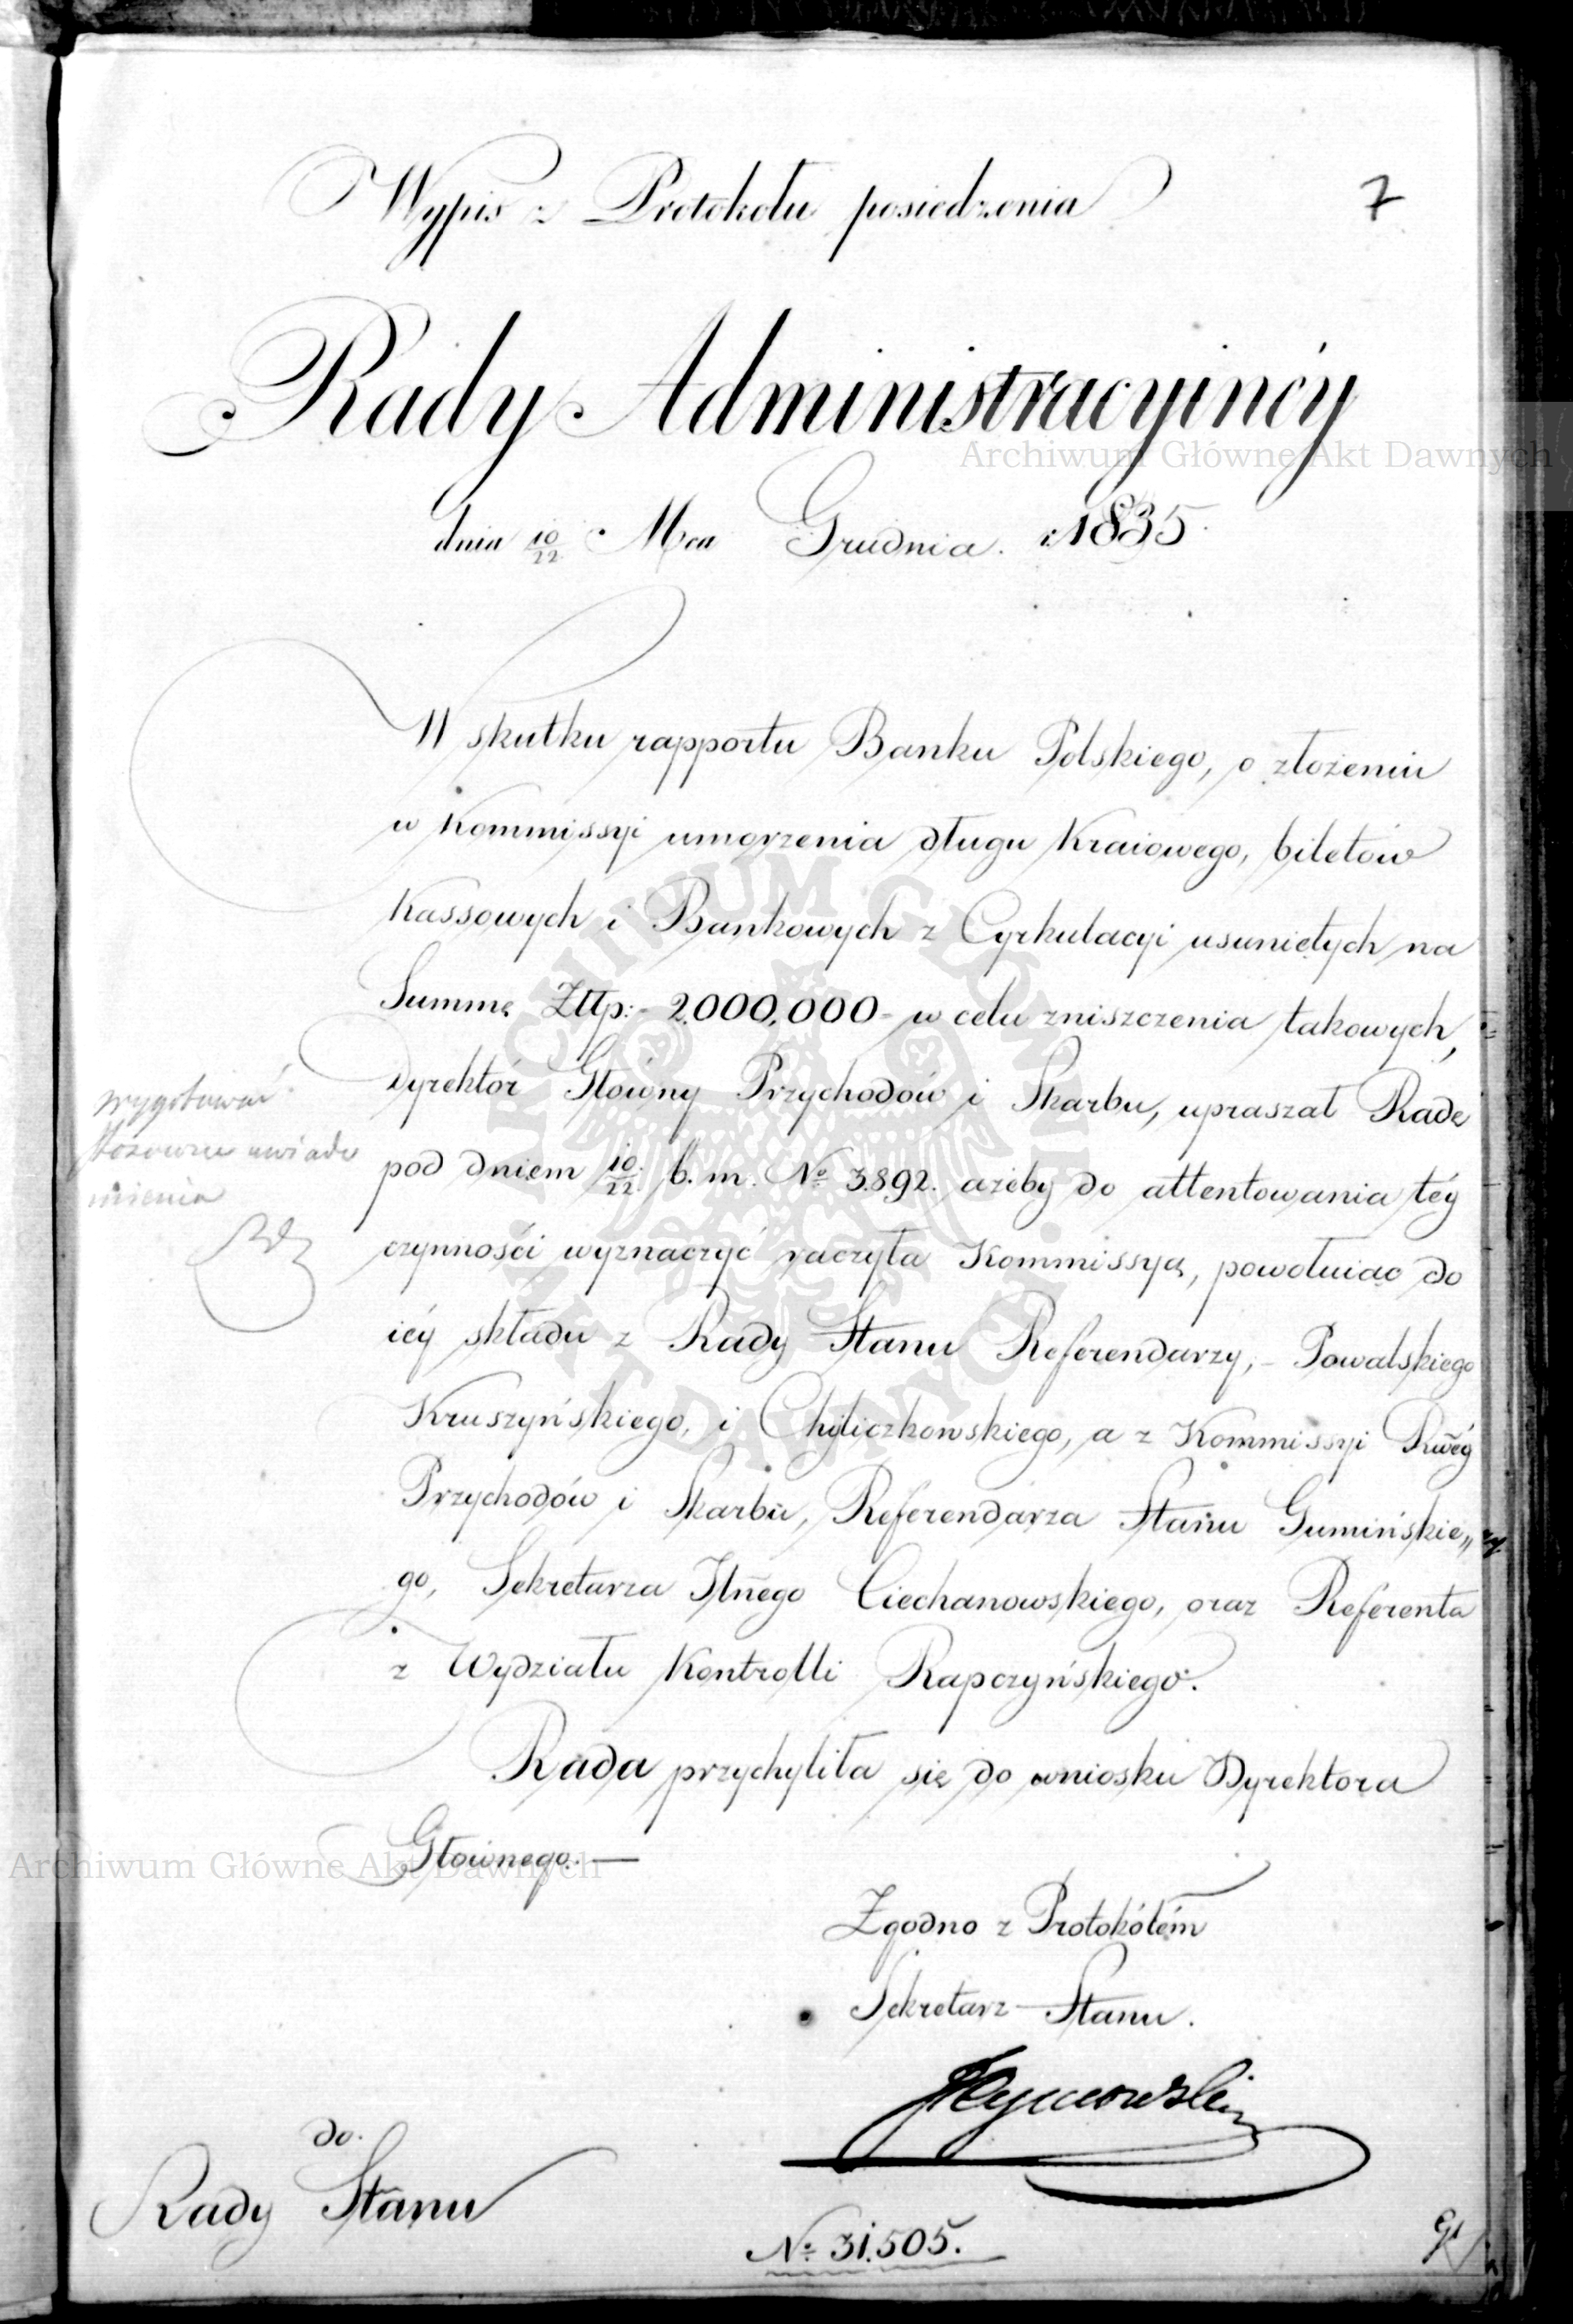 7
Wypis z Protokołu posiedzenia
Rady Administracyinéy
dnia 10/22 Mca Grudnia 1835.
W skutku rapportu Banku Polskiego, o złożeniu
w Kommissyi umorzenia długu Kraiowego, biletów
Kassowych i Bankowych z Cyrkulacyi usuniętych na
Summę Złłp: 2.000,000 w celu zniszczenia takowych,
Dyrektór Głowny Przychodów i Skarbu, upraszał Radę
pod dniem 10/22 b. m. No 3.892. ażeby do attentowania téy
czynnośći wyznaczyć raczyła Kommissyą, powołuiąc do
iéy składu z Rady Stanu Referendarzy, Powalskiego
Kruszyńskiego, i Chyliczkowskiego, a z Kommissyi Rwéy
Przychodów i Skarbu, Referendarza Stanu Gumińskie„
go, Sekretarza Jlnego Ciechanowskiego, oraz Referenta
z Wydziału Kontrolli Rapczyńskiego.
Rada przychyliła się do wniosku Dyrektora
Głównego.—
wygotować
stosowne uwiado
mienia
Zgodno z Protokółém
Sekretarz Stanu.
do
Rady Stanu
No 31.505.
Archiwum Główne Akt Dawnych
ARCHIWUM GŁÓWNE AKT DAWNYCH
Archiwum Główne Akt Dawnych